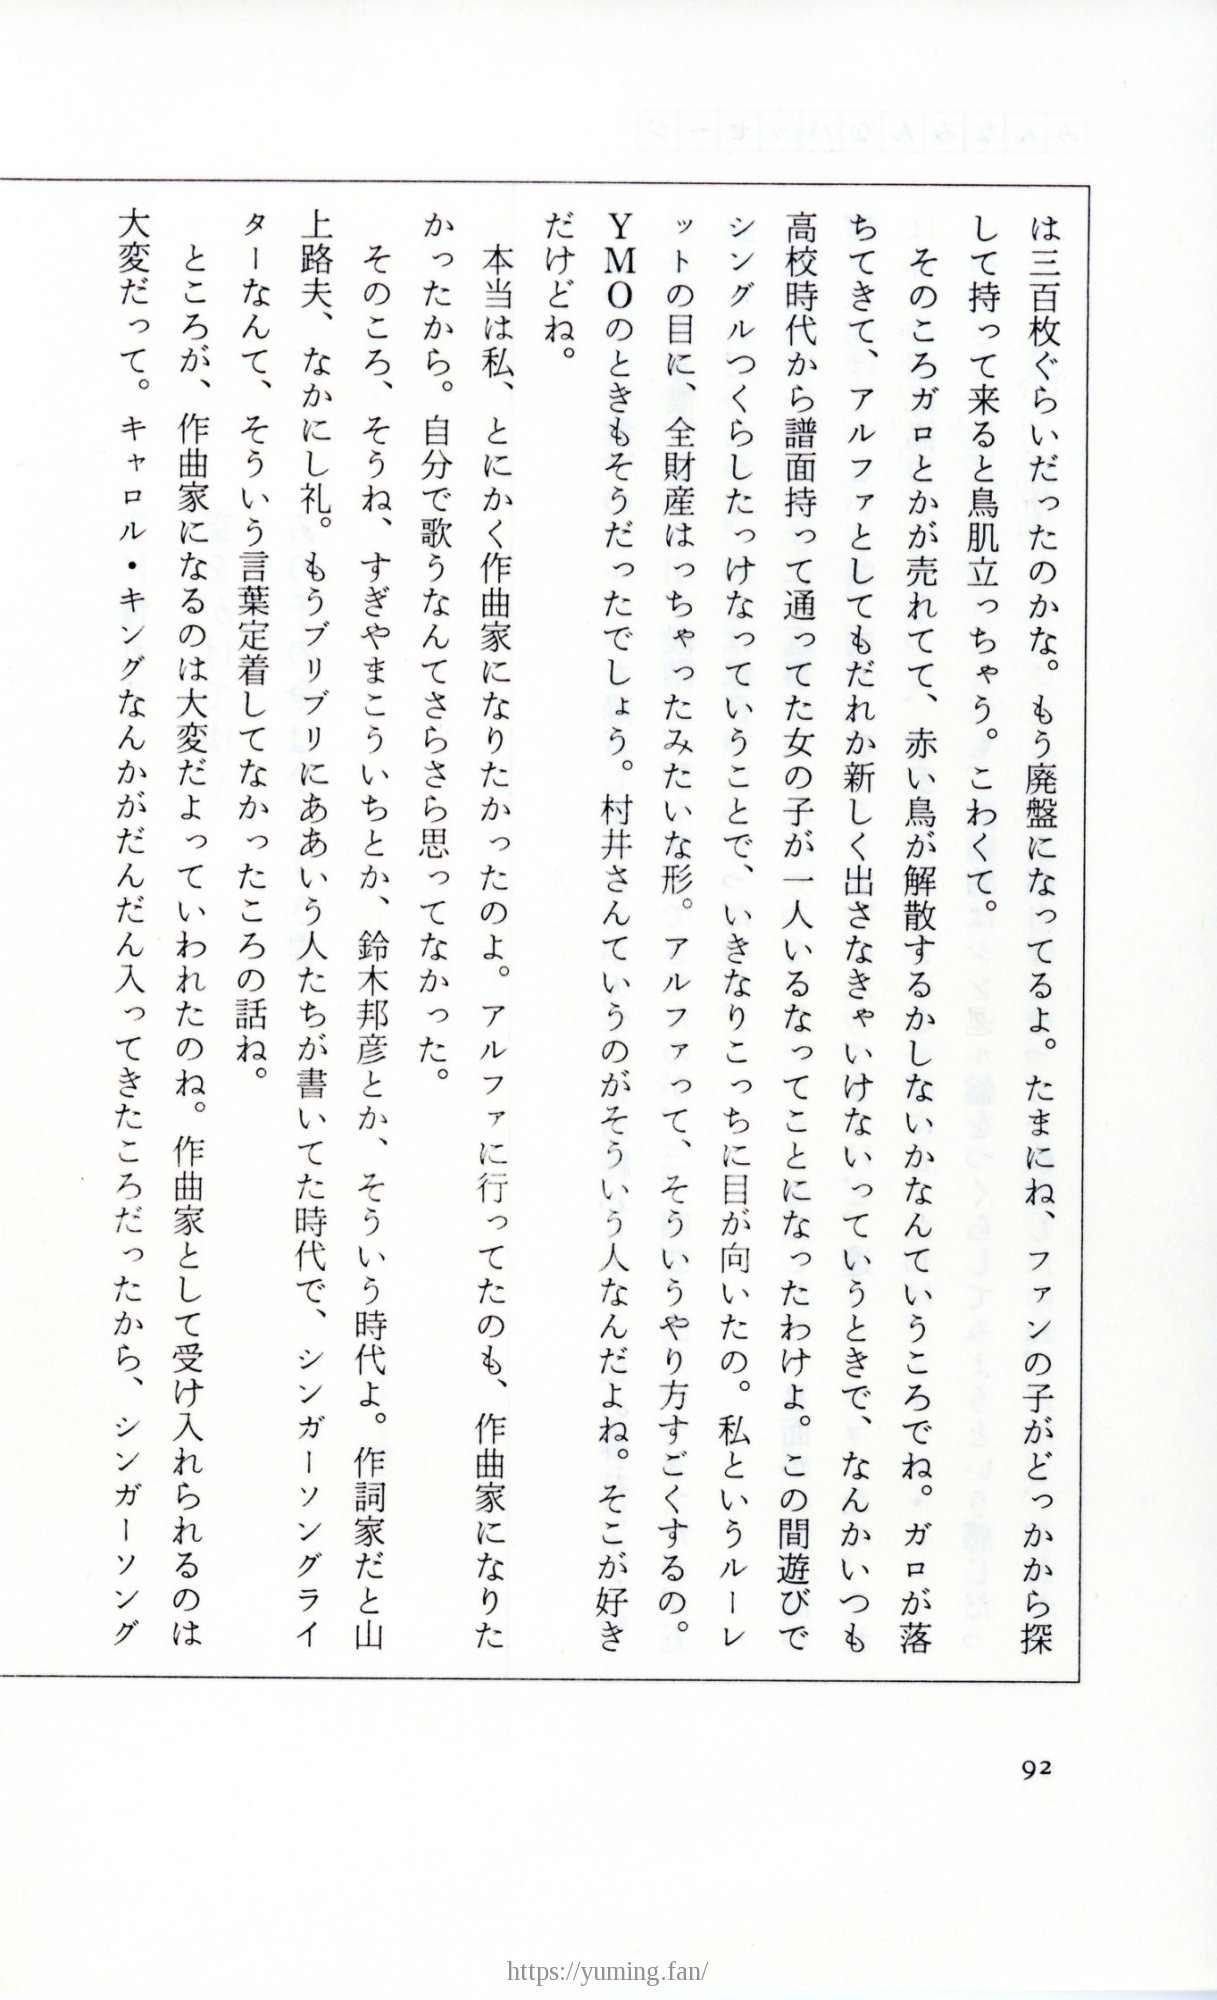 は三百枚ぐらいだったのかな。もう廃盤になってるよ。たまにね、ファンの子がどっかから探
して持って来ると鳥肌立っちゃう。こわくて。
そのころガロとかが売れてて、赤い鳥が解散するかしないかなんていうころでね。ガロが落
ちてきて、アルファとしてもだれか新しく出さなきゃいけないっていうときで、なんかいつも
高校時代から譜面持って通ってた女の子が一人いるなってことになったわけよ。この間遊びで
シングルつくらしたっけなっていうことで、いきなりこっちに目が向いたの。私というルーレ
ットの目に、全財産はっちゃったみたいな形。アルファって、そういうやり方すごくするの。
YMOのときもそうだったでしょう。村井さんていうのがそういう人なんだよね。そこが好き
だけどね。
本当は私、とにかく作曲家になりたかったのよ。アルファに行ってたのも、作曲家になりた
かったから。自分で歌うなんてさらさら思ってなかった。
そのころ、そうね、すぎやまこういちとか、鈴木邦彦とか、そういう時代よ。作詞家だと山
上路夫、なかにし礼。もうブリブリにああいう人たちが書いてた時代で、シンガーソングライ
ターなんて、そういう言葉定着してなかったころの話ね。
ところが、作曲家になるのは大変だよっていわれたのね。作曲家として受け入れられるのは
大変だって。キャロル・キングなんかがだんだん入ってきたころだったから、シンガーソング
92
https://yuming.fan/